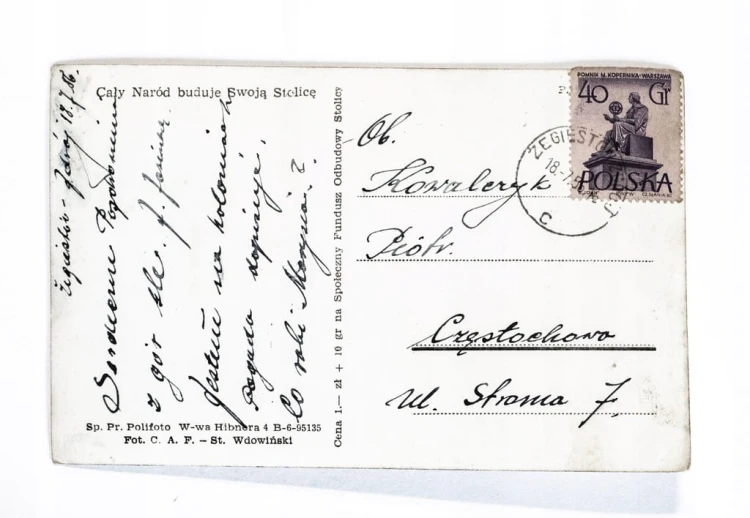 Cały Naród buduje Swoją Stolicę
Żegiestów-Zdrój 18.7.56.
Serdeczne Pozdrowienia
z gór śle J. Janusz.
Jestem na koloniach
pogoda dopisuje.
Co robi Marysia?
Sp. Pr. Polifoto W-wa Hibnera 4 B-6-95135
Fot. C. A. F. — St. Wdowiński
Cena 1.— zł + 10 gr na Społeczny Fundusz Odbudowy Stolicy
POMNIK M. KOPERNIKA-WARSZAWA
40 Gr
POLSKA
ŻEGIESTÓW
18.-7.5
C
Ob.
Kowalczyk
Piotr.
Częstochowa
ul. Stroma 7.